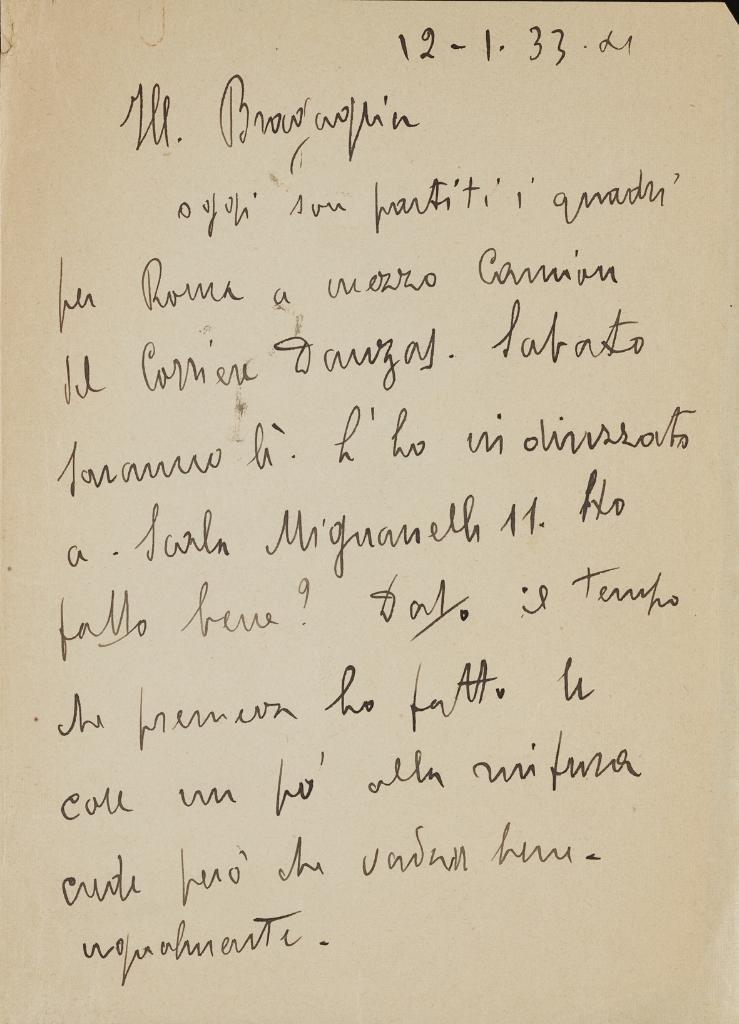 12-1.33.XI
Ill. Bragaglia
oggi son partiti i quadri
per Roma a mezzo Camion
del Corriere Danzas. Sabato
saranno lì. L'ho indirizzato
a. Scala Mignanelli 11. Ho
fatto bene? Dato il tempo
che premeva ho fatto le
cose un po' alla
credo però che vadan bene
ugualmente.